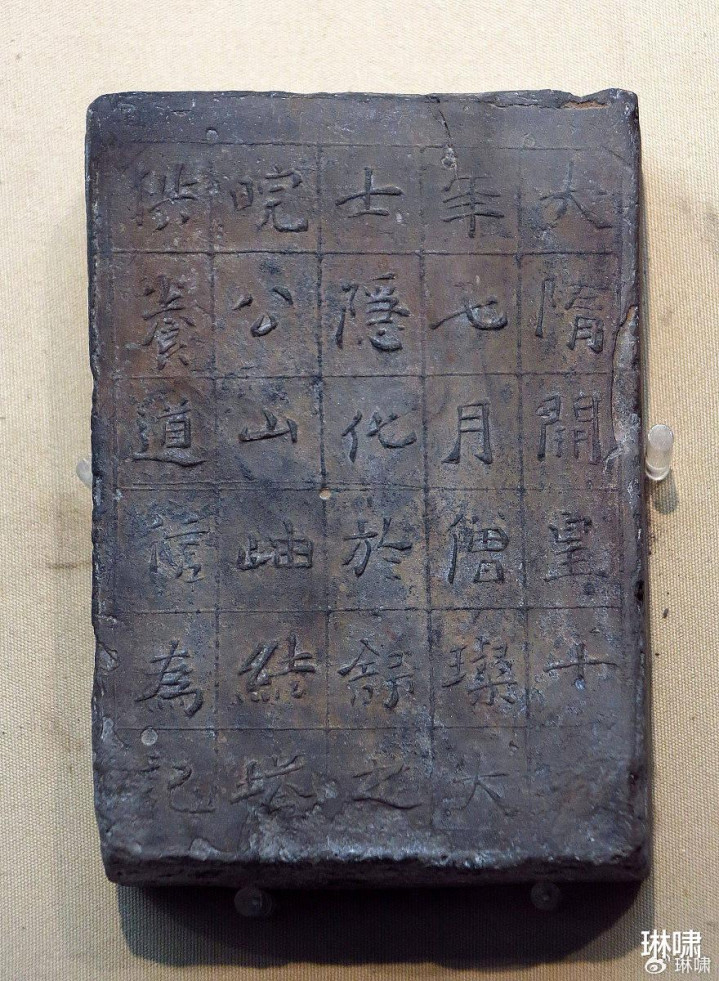 大隋開皇十
年七月僧璨大
士隱化於舒之
晥公山岫結塔
供養道信為記
琳啸
琳啸